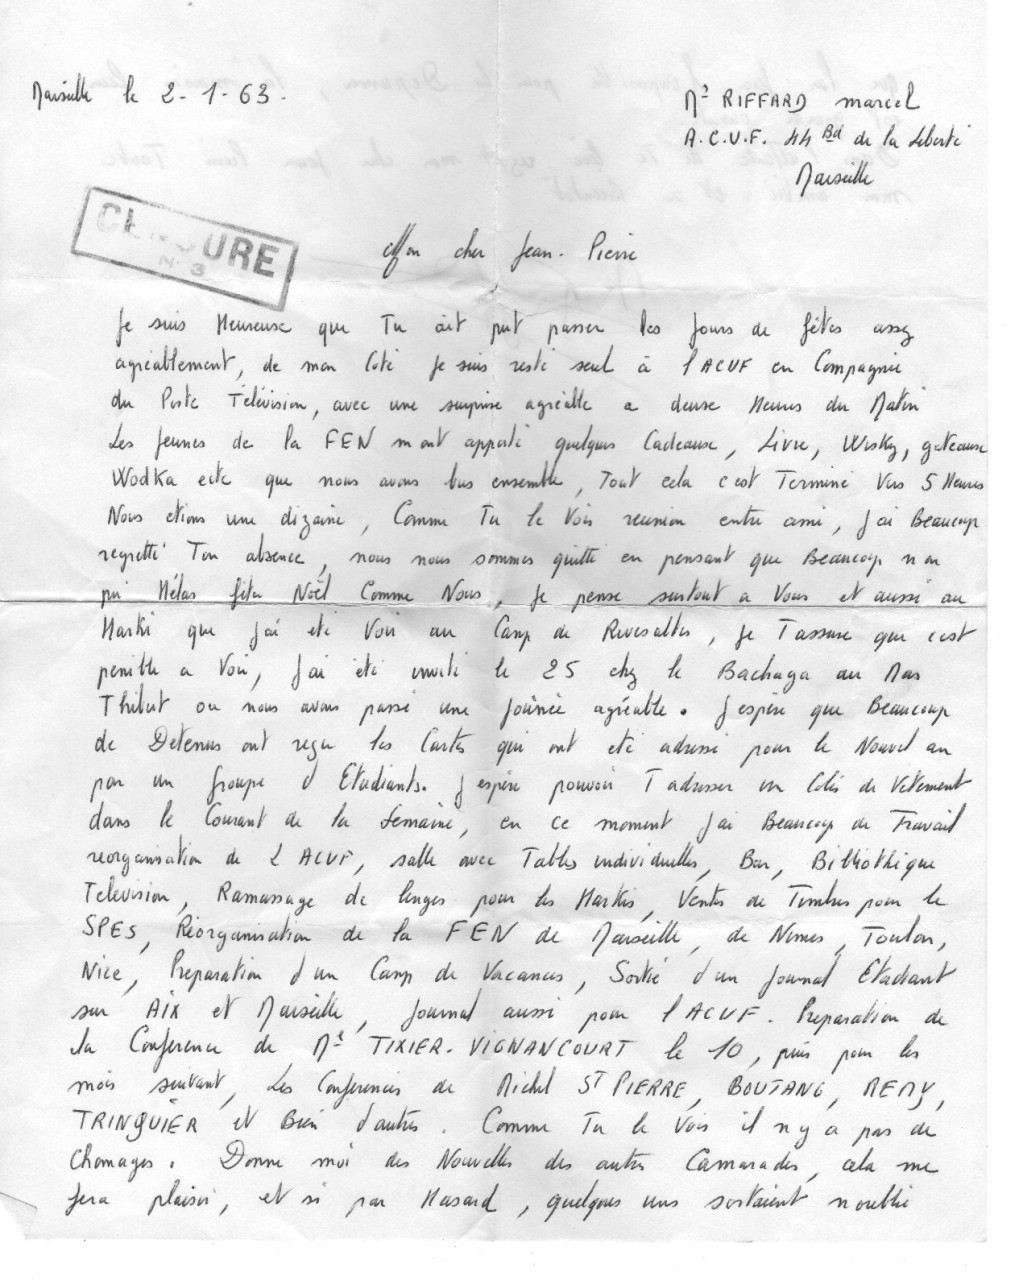 Marseille le 2-1-63.
Mr RIFFARD marcel
A.C.U.F. 44 Bd de la Liberté
Marseille
CENSURE
N. 3
Mon cher Jean-Pierre
Je suis Heureuse que Tu ait put passer les Jours de fêtes assez
agréablement, de mon Coté Je suis resté seul à l'ACUF en Compagnie
du Poste Télévision, avec une surprise agréable a deuse Heures du Matin
Les Jeunes de la FEN m ont apporté quelques Cadeause, Livre, Wisky, gateause
Wodka ecte que nous avons bus ensemble, Tout cela c'est Terminé Vers 5 Heures
Nous etions une dizaine, Comme Tu le Vois reunion entre ami, J ai Beaucoup
regretté Ton absence, nous nous sommes quitté en pensant que Beaucoup n on
pu Hélas fêter Noël Comme Nous, Je pense surtout a Vous et aussi au
Harki que J'ai eté Voir au Camp de Rivesaltes, Je T assure que c'est
penible a Voir, J ai été invité le 25 chez le Bachaga au Mas
Thibert ou nous avons passé une Journée agréable. J espère que Beaucoup
de Detenus ont reçu les Cartes qui ont eté adressé pour le Nouvel an
par un groupe d Etudiants. J espère pouvoir T adresser un Colis de Vetement
dans le Courant de la Semaine, en ce moment J'ai Beaucoup de Travail
reorganisation de L ACUF, salle avec Tables individuelles, Bar, Bibliothèque
Television, Ramassage de linges pour les Harkis, Ventes de Timbres pour le
SPES, Réorganisation de la FEN de Marseille, de Nimes, Toulon,
Nice, Preparation d'un Camp de Vacances, Sortie d'un Journal Etudiant
sur AIX et Marseille, Journal aussi pour l ACUF. Preparation de
la Conference de Me TIXIER-VIGNANCOURT le 10, puis pour les
mois suivant, Les Conferences de Michel ST PIERRE, BOUTANG, REMY,
TRINQUIER et Bien d'autres. Comme Tu le Vois il n y a pas de
Chomages. Donne moi des Nouvelles des autres Camarades, cela me
fera plaisir, et si par Hasard, quelques uns sortaient n oublie